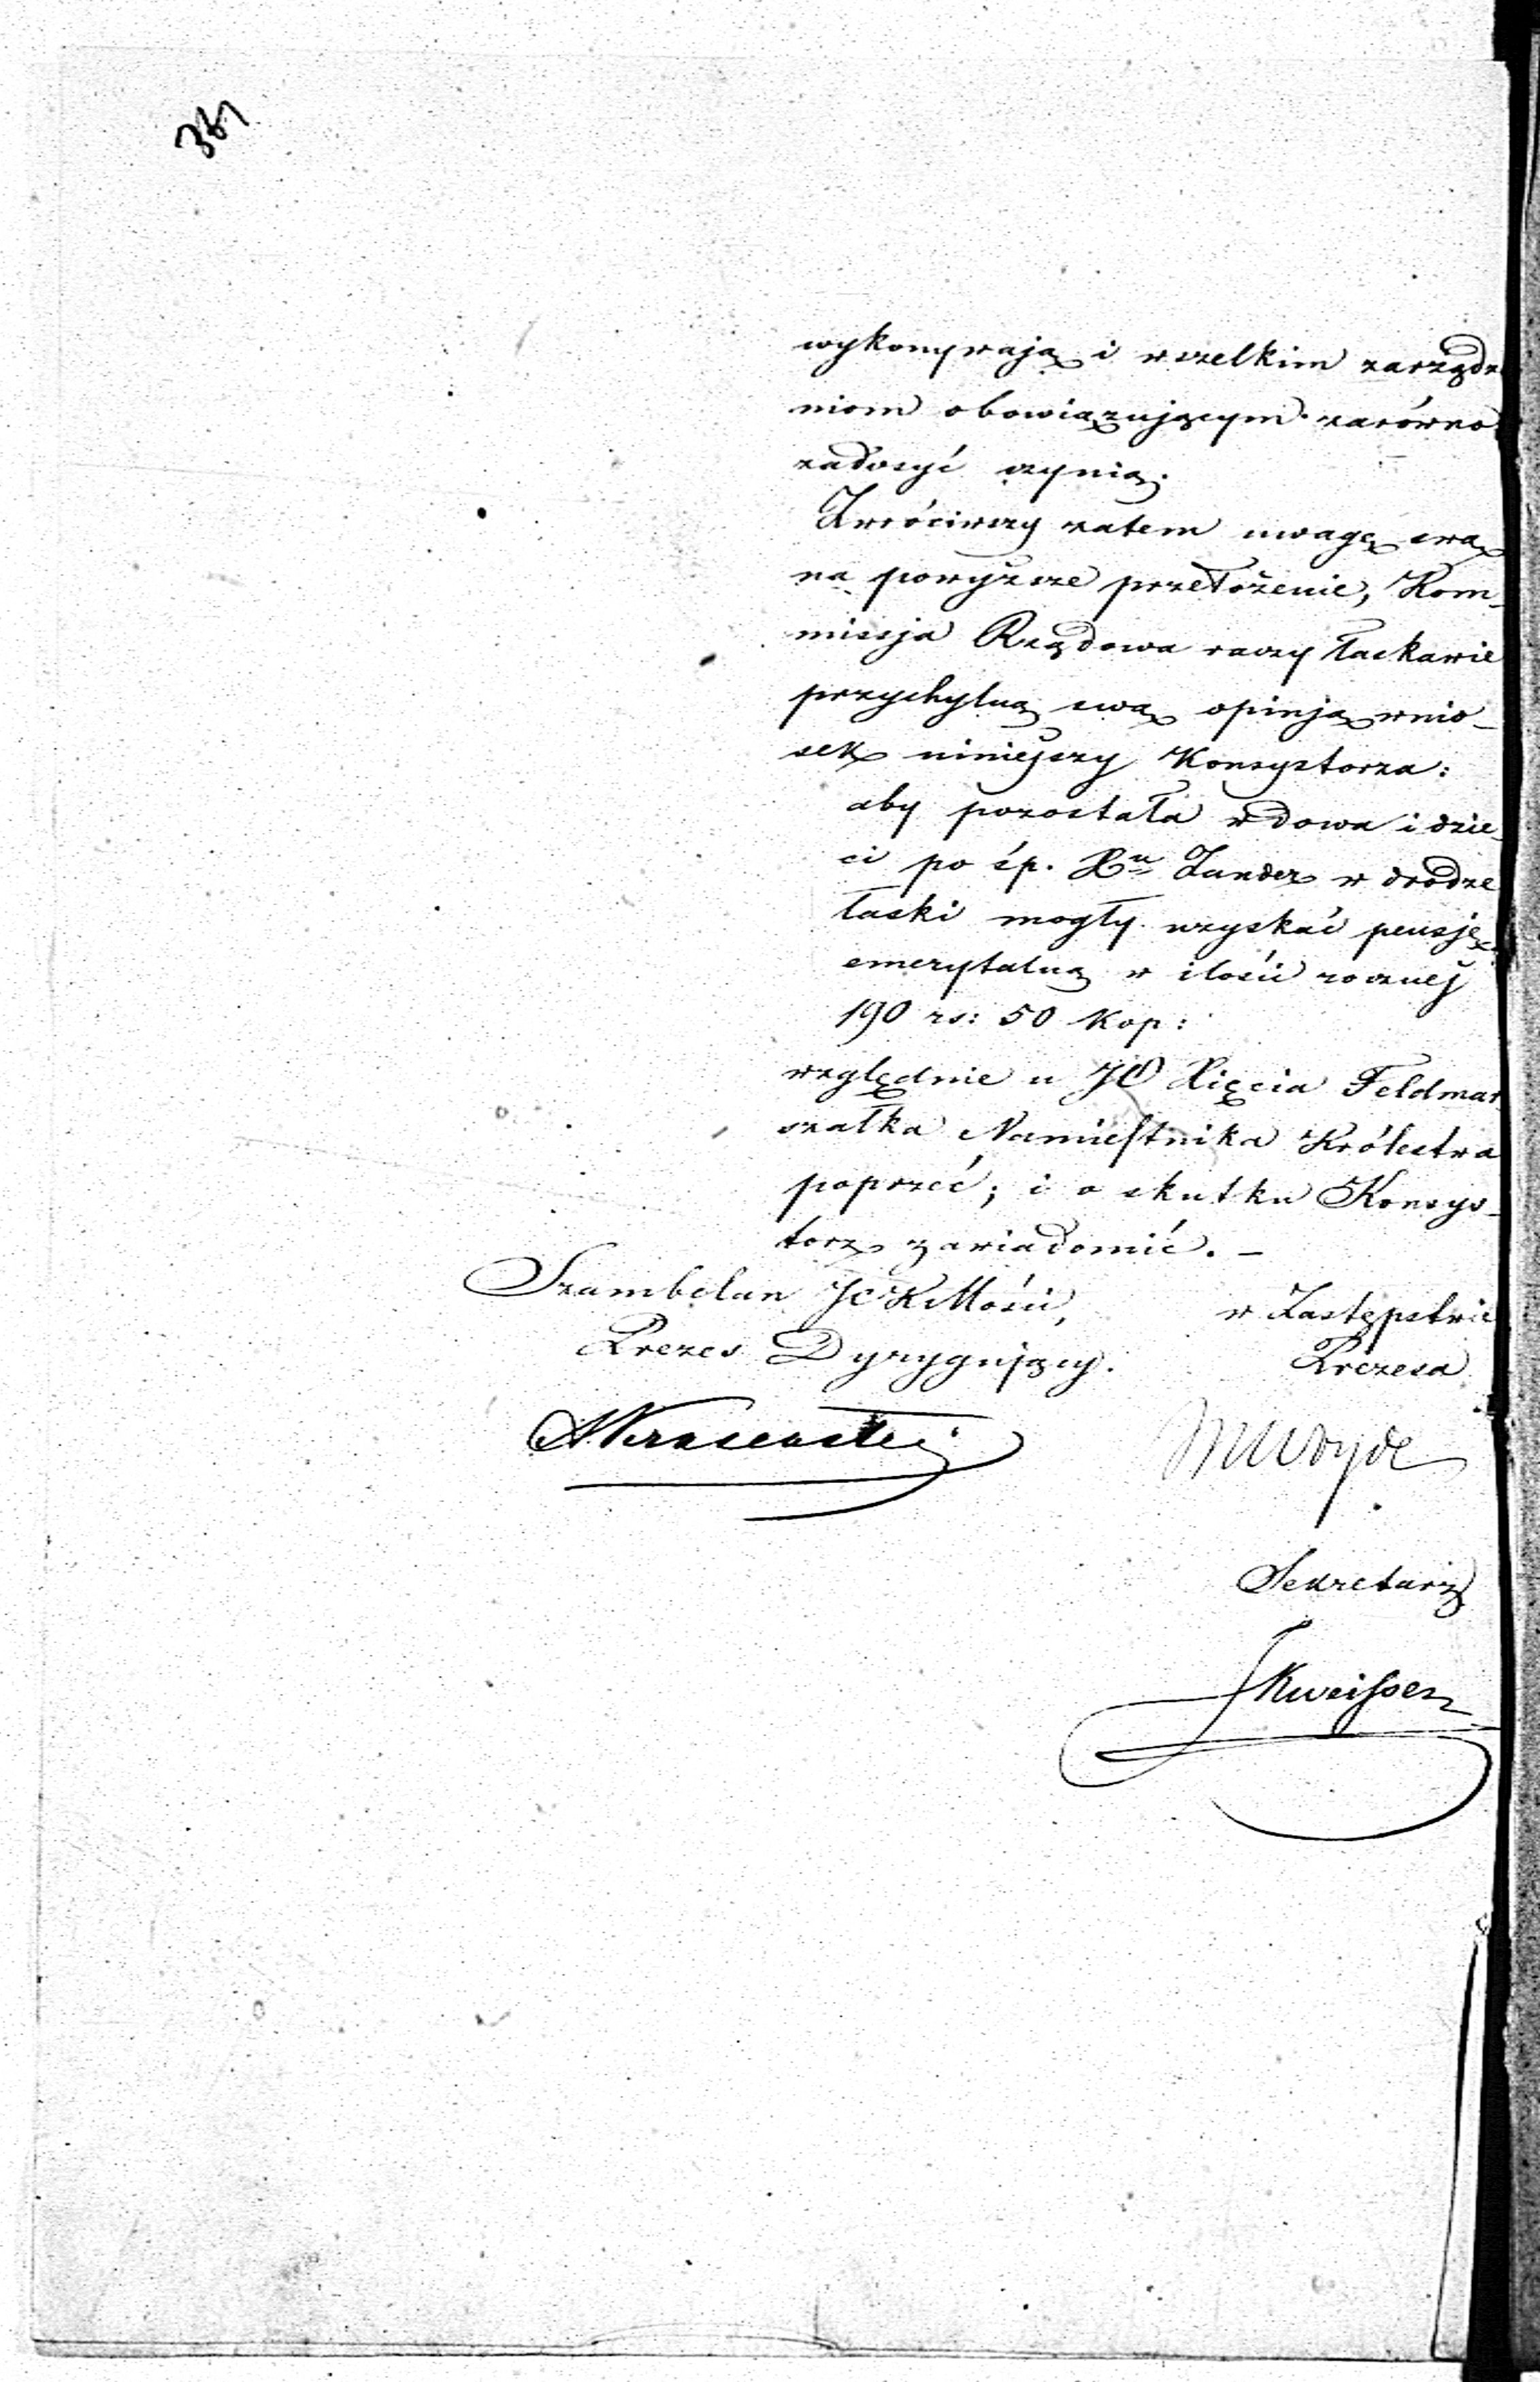 361
wykonywają i wszelkim zarządze
niom obowiązującym zarówno
zadosyć czynią.
Zwróciwszy zatem uwagę swą
na powyższe przełożenie, Kom-
missja Rządowa raczy łaskawie
przychylną swą opinją wnio-
sek niniejszy Konsystorza:
aby pozostała wdowa i dzie-
ci po śp. Xu Zander w drodze
łaski mogły uzyskać pensję
emerytalną w ilości rocznej
190 rs: 50 kop:
względnie u JO Xięcia Feldmar
szałka Namiestnika Królestwa
poprzeć; i o skutku Konsys-
torz zawiadomić. –
Szambelan JCKMości, w Zastępstwie
Prezes Dyrygujący. Prezesa
Sekretarz